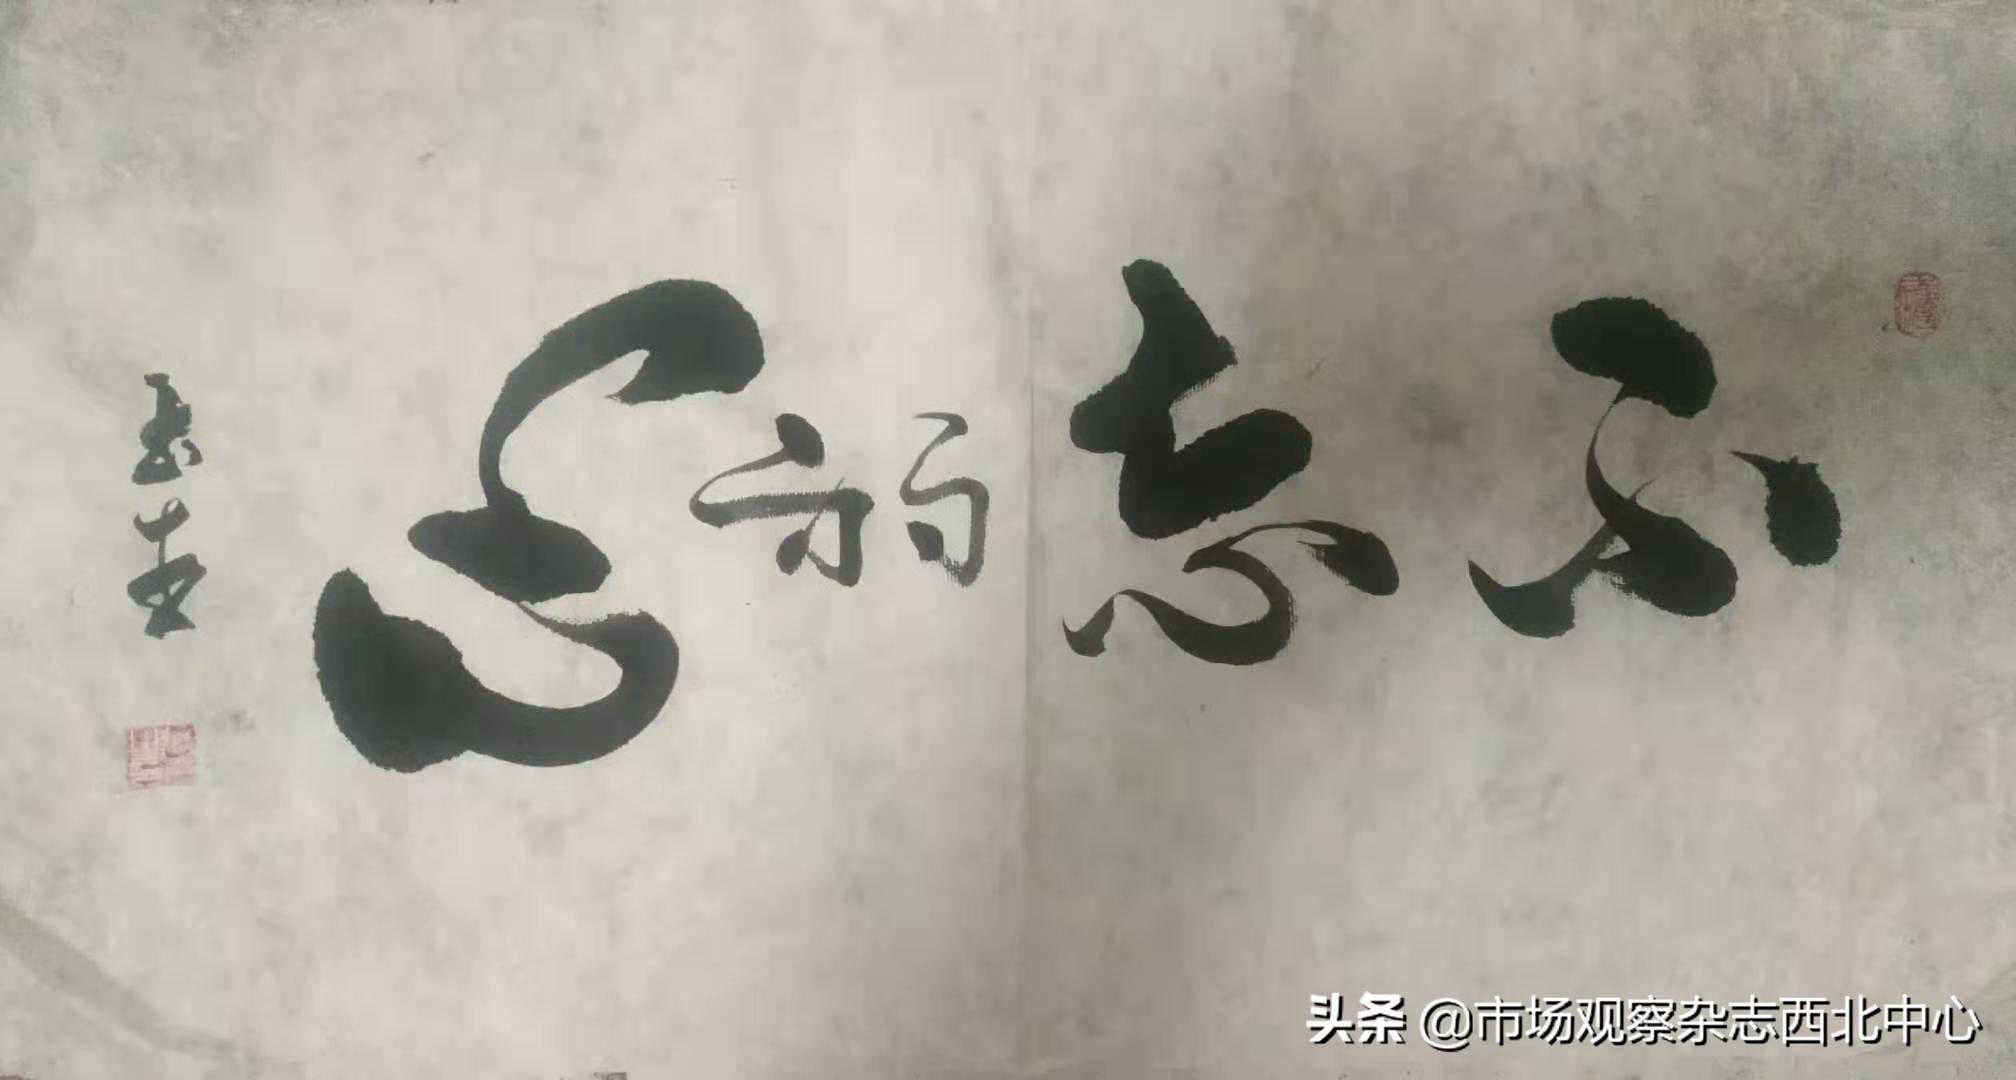 不忘初心
志
头条 @市场观察杂志西北中心